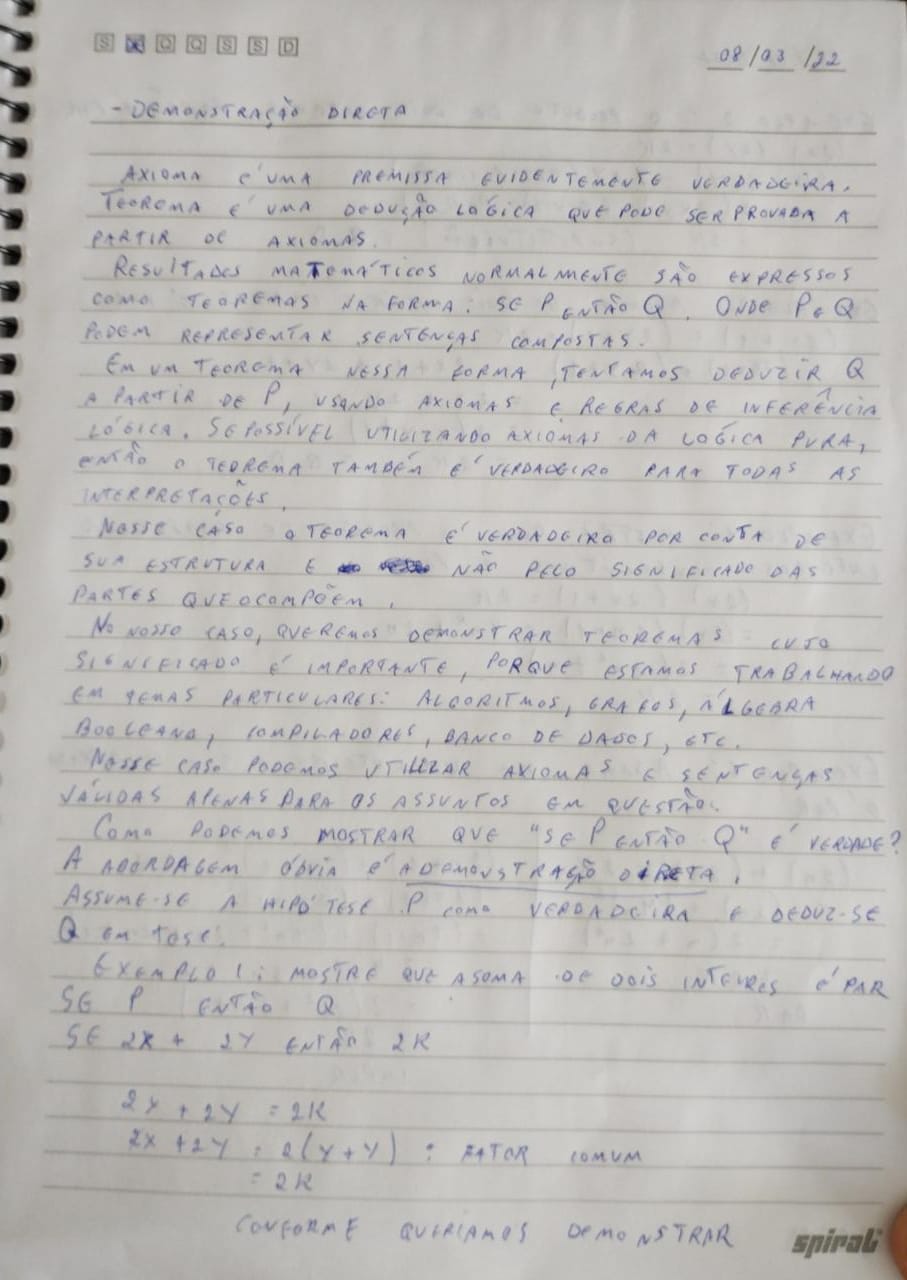 S X Q Q S S D
08/03/22
- DEMONSTRAÇÃO DIRETA
AXIOMA É UMA PREMISSA EVIDENTEMENTE VERDADEIRA.
TEOREMA É UMA DEDUÇÃO LÓGICA QUE PODE SER PROVADA A
PARTIR DE AXIOMAS.
RESULTADOS MATEMÁTICOS NORMALMENTE SÃO EXPRESSOS
COMO TEOREMAS NA FORMA: SE P ENTÃO Q. ONDE P E Q
PODEM REPRESENTAR SENTENÇAS COMPOSTAS.
EM UM TEOREMA NESSA FORMA, TENTAMOS DEDUZIR Q
A PARTIR DE P, USANDO AXIOMAS E REGRAS DE INFERÊNCIA
LÓGICA. SE POSSÍVEL UTILIZANDO AXIOMAS DA LOGÍCA PURA,
ENTÃO O TEOREMA TAMBÉM É VERDADEIRO PARA TODAS AS
INTERPRETAÇÕES.
NESSE CASO O TEOREMA É VERDADEIRO POR CONTA DE
SUA ESTRUTURA E NÃO PELO SIGNIFICADO DAS
PARTES QUE O COMPÕEM.
NO NOSSO CASO, QUEREMOS DEMONSTRAR TEOREMAS CUJO
SIGNIFICADO É IMPORTANTE, PORQUE ESTAMOS TRABALHANDO
EM TEMAS PARTICULARES: ALGORITMOS, GRAFOS, ÁLGEBRA
BOOLEANA, COMPILADORES, BANCO DE DADOS, ETC.
NESSE CASO PODEMOS UTILIZAR AXIOMAS E SENTENÇAS
VÁLIDAS APENAS PARA OS ASSUNTOS EM QUESTÃO.
COMO PODEMOS MOSTRAR QUE "SE P ENTÃO Q" É VERDADE?
A ABORDAGEM ÓBVIA É A DEMONSTRAÇÃO DIRETA.
ASSUME-SE A HIPÓTESE P COMO VERDADEIRA E DEDUZ-SE
Q EM TESE.
EXEMPLO 1: MOSTRE QUE A SOMA DE DOIS INTEIRES É PAR
SE P ENTÃO Q
SE 2X + 2Y ENTÃO 2K
2X + 2Y = 2K
2X + 2Y = 2(Y + Y) : FATOR COMUM
= 2K
CONFORME QUERIAMOS DEMONSTRAR
spiral